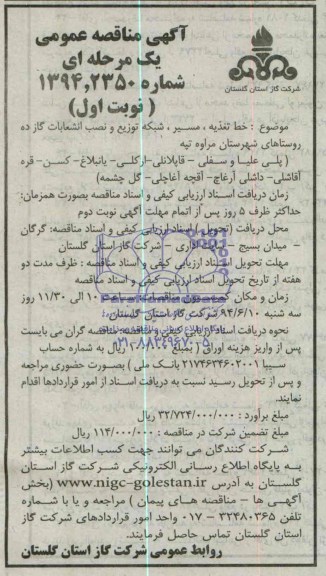 آگهی مناقصه عمومی
یک مرحله ای
شماره ۱۳۹۴,۲۳۵۰
( نوبت اول)
شرکت گاز استان گلستان
موضوع : خط تغذیه ، مسیر ، شبکه توزیع و نصب انشعابات گاز ده
روستاهای شهرستان مراوه تپه
( پلی علیا و سفلی - قاپلانلی-ارکلی- یانبلاغ- کسن- قره
آقاشلی- داشلی آرغاچ- آقچه آغاچلی- گل چشمه)
زمان دریافت اسناد ارزیابی کیفی و اسناد مناقصه بصورت همزمان:
حداکثر ظرف ۵ روز پس از اتمام مهلت آگهی نوبت دوم
محل دریافت (تحویل) اسناد ارزیابی کیفی و اسناد مناقصه: گرگان
- میدان بسیج - اداری - شرکت گاز استان گلستان
مهلت تحویل اسناد ارزیابی کیفی و اسناد مناقصه : ظرف مدت دو
هفته از تاریخ تحویل اسناد ارزیابی کیفی و اسناد مناقصه
زمان و مکان ۱۰ الی ۱۱/۳۰ روز
سه شنبه ۹۴/۶/۱۰ شرکت گاز استان گلستان
نحوه دریافت اسناد ارزیابی کیفی و مناقصه: مناقصه گران می بایست
پس از واریز هزینه اوراق ( بمبلغ ریال به شماره حساب
سیبا ۲۱۷۴۶۳۴۶۰۲۰۰۱ بانک ملی ) بصورت حضوری مراجعه
و پس از تحویل رسید نسبت به دریافت اسناد از امور قراردادها اقدام
نمایند.
مبلغ برآورد : ۳۲/۷۲۴/۰۰۰/۰۰۰ ریال
مبلغ تضمین شرکت در مناقصه : ۱۱۴/۰۰۰/۰۰۰ ریال
شرکت کنندگان می توانند جهت کسب اطلاعات بیشتر
به پایگاه اطلاع رسانی الکترونیکی شرکت گاز استان
گلستان به آدرس www.nigc-golestan.ir (بخش
آگهی ها - مناقصه های پیمان ) مراجعه و یا با شماره
تلفن ۳۲۴۸۰۳۶۵ - ۰۱۷ واحد امور قراردادهای شرکت گاز
استان گلستان تماس حاصل فرمایند.
روابط عمومی شرکت گاز استان گلستان